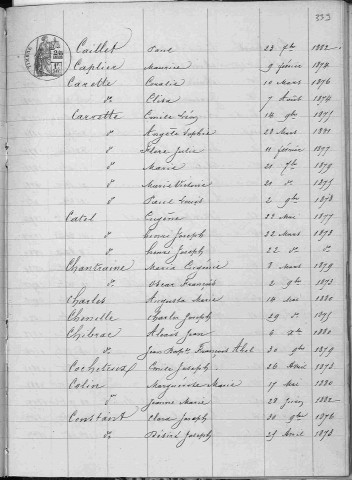 353
Caillet Paul 23 9bre 1882
Caplier Maurice 9 février 1874
Carette Coralie 10 Mars 1876
do Elisa 7 Août 1874
Carrette Emile Léon 14 9bre 1875
do Angèle Sophie 28 Mars 1881
do Flore Julie 11 février 1877
do Marie 20 7bre 1879
do Marie Victorine 20 do 1875
do Paul Louis 2 9bre 1878
Catel Eugène 22 Mai 1877
do Henri Joseph 22 Mars 1873
do Joseph 22 do do
Chantraine Maria 8 Mars 1879
do Oscar François 2 9bre 1873
Charles Augusta Marie 14 Mai 1880
Chenelle Charles Joseph 29 do 1875
Chibrac Alexis Jean 6 Xbre 1880
do Jean Bapte François Abel 30 9bre 1879
Cocheteux Emile Joseph 26 Avril 1873
Colin Marguerite Marie 17 Mai 1880
do Jeanne Marie 28 Juin 1882
Constant Clara Joseph 30 9bre 1876
do Désiré Joseph 25 Avril 1873